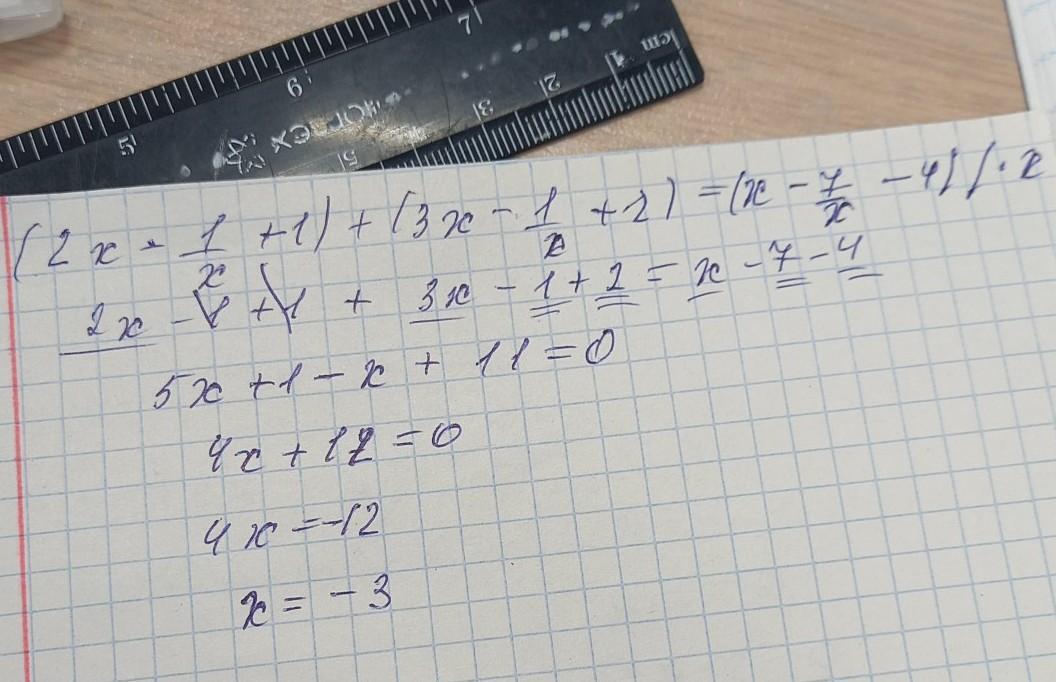 7 6 5
cm 1 2 3 5
(2x - 1/x + 1) + (3x - 1/x + 2) = (x - 7/x - 4) | · x
2x - 1 + 1 + 3x - 1 + 2 = x - 7 - 4
5x + 1 - x + 11 = 0
4x + 12 = 0
4x = -12
x = -3